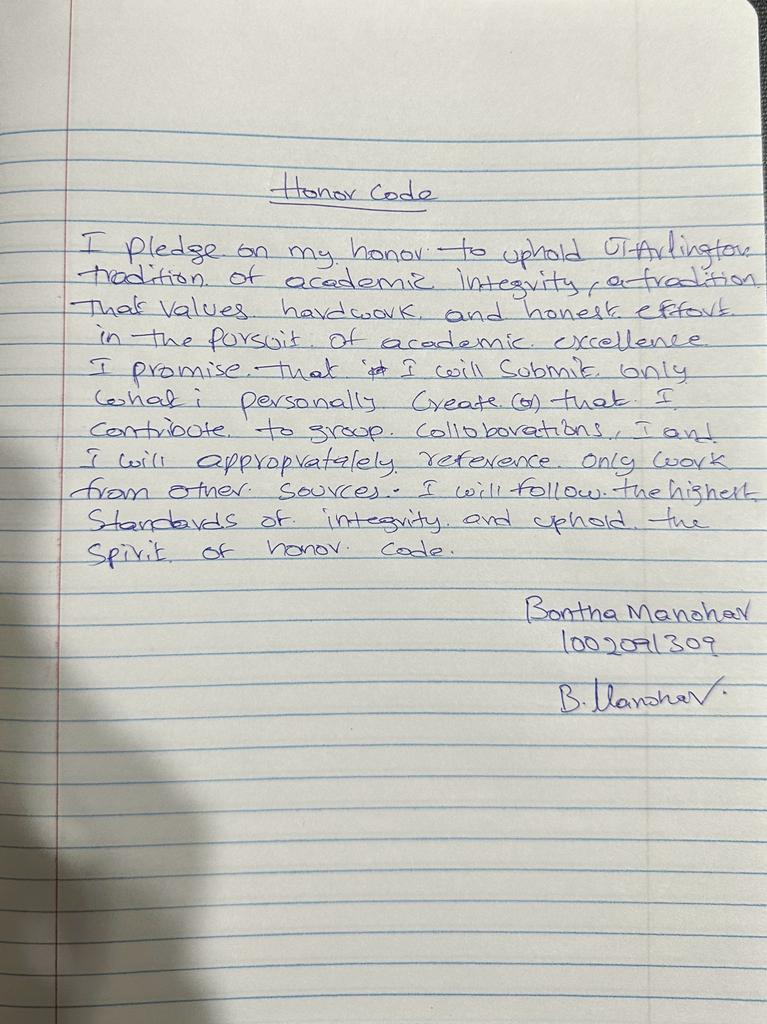 Honor Code
I pledge on my honor to uphold UT-Arlington
tradition of academic integrity, a tradition
that values hardwork and honest effort
in the pursuit of academic excellence
I promise that I will submit only
what i personally create (or) that I
contribute to group collaborations, I and
I will appropratelely reference only work
from other sources. I will follow the highest
standards of integrity and uphold the
spirit of honor code.
Bontha Manohar
1002091309
B. Manohar.